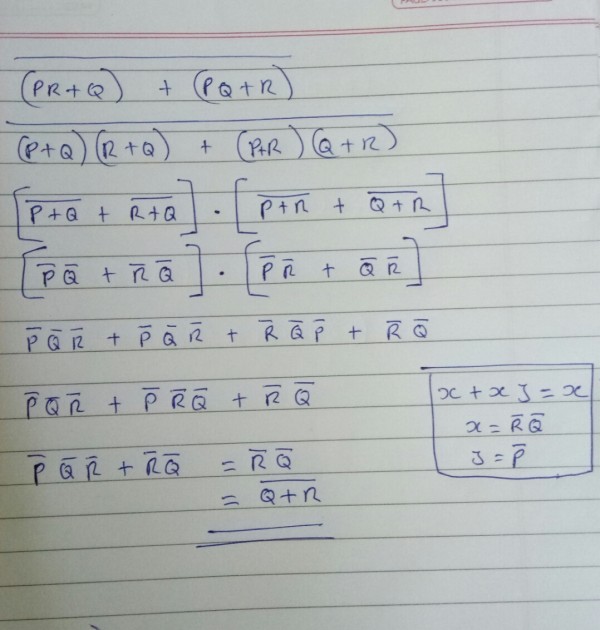 \overline{(PR+Q) + (PQ+R)}
\overline{(P+Q)(R+Q) + (P+R)(Q+R)}
[\overline{P+Q} + \overline{R+Q}] · [\overline{P+R} + \overline{Q+R}]
[P̅Q̅ + R̅Q̅] · [P̅R̅ + Q̅R̅]
P̅Q̅R̅ + P̅Q̅R̅ + R̅Q̅P̅ + R̅Q̅
P̅Q̅R̅ + P̅R̅Q̅ + R̅Q̅
x + xy = x
x = R̅Q̅
y = P̅
P̅Q̅R̅ + R̅Q̅ = R̅Q̅
= \overline{Q+R}